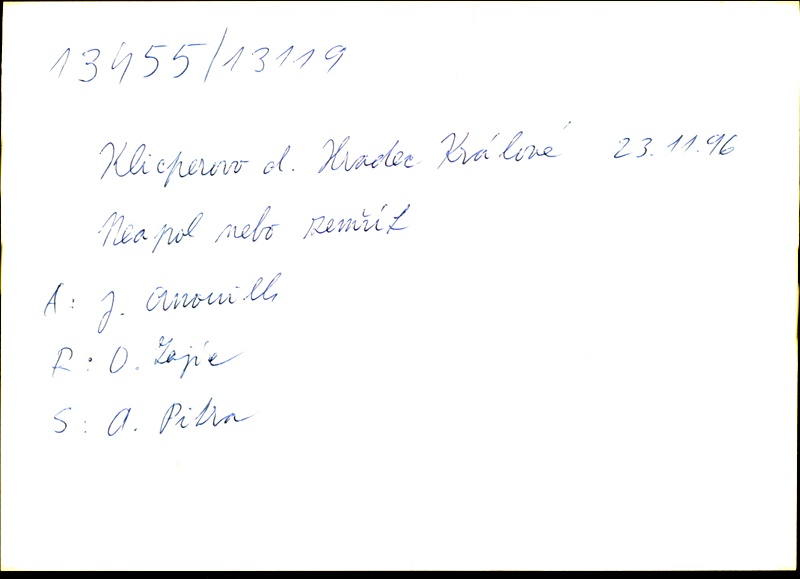 13455/13119
Klicperovo d. Hradec Králové 23.11.96
Neapol nebo zemřít
A: J. Anouilh
R: O. Zajíc
S: A. Pitra